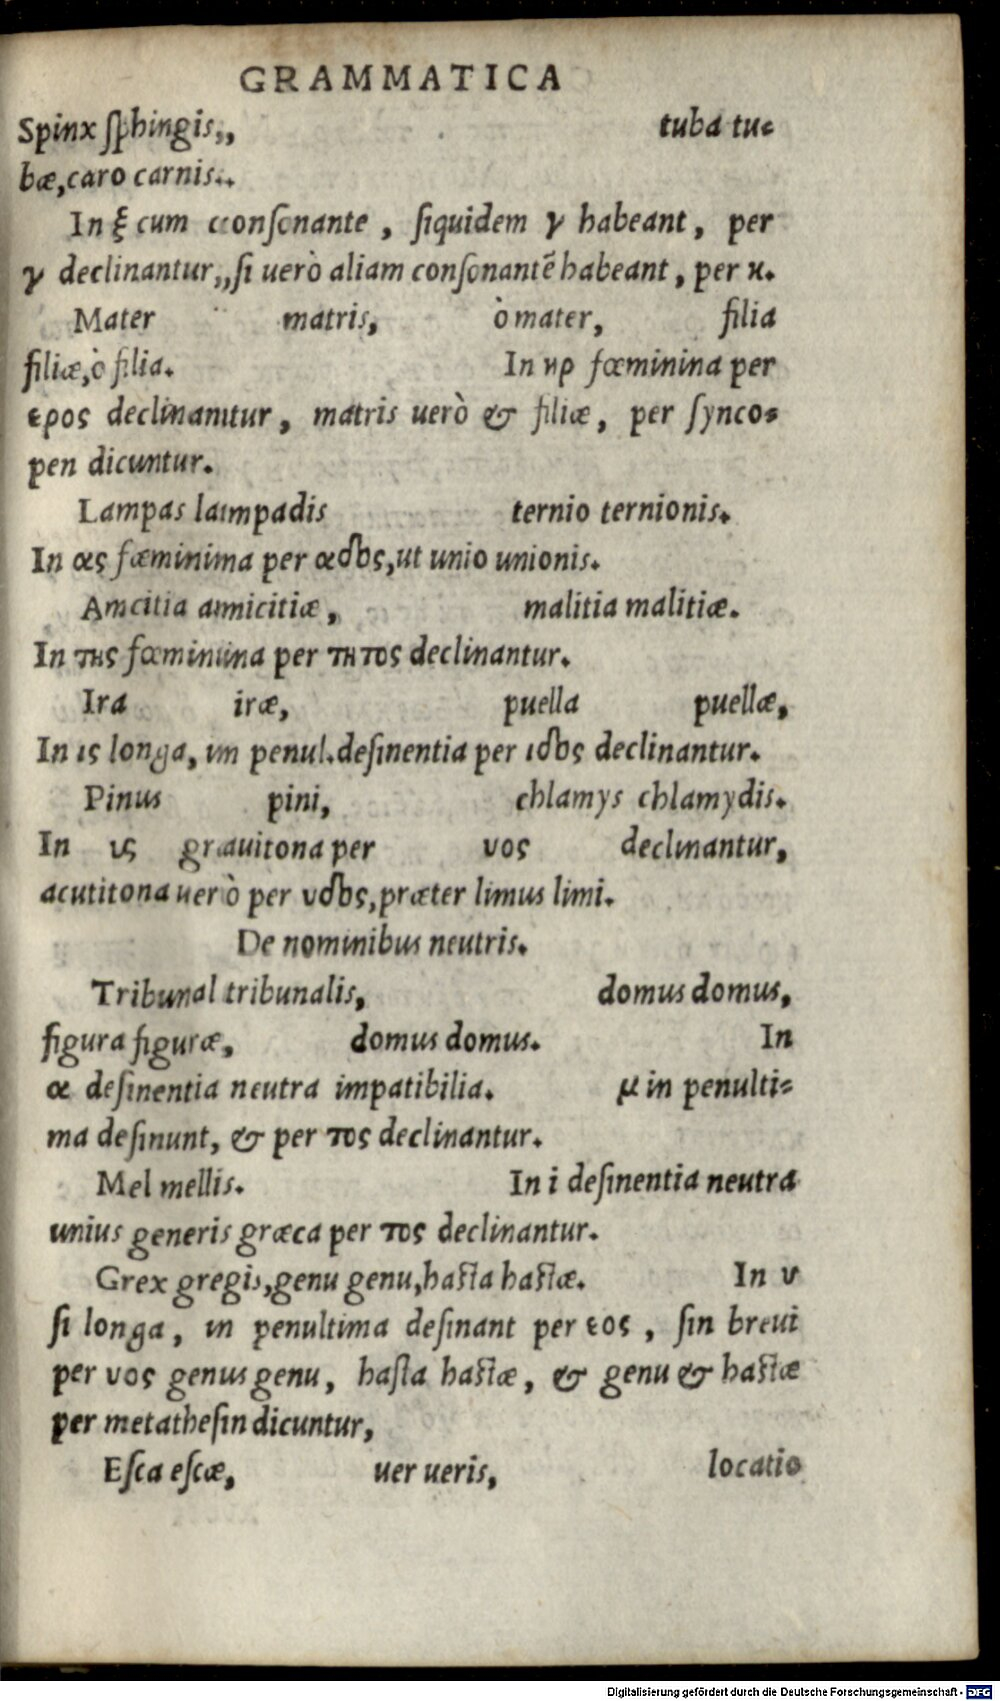 GRAMMATICA
Spinx ſphingis, tuba tu⸗
bæ, caro carnis.
In ξ cum conſonante, ſiquidem γ habeant, per
γ declinantur, ſi uerò aliam conſonantẽ habeant, per κ.
Mater matris, ò mater, filia
filiæ, ò filia. In ηρ fœminina per
ερος declinantur, matris uerò & filiæ, per ſynco⸗
pen dicuntur.
Lampas lampadis ternio ternionis.
In ας fœminima per αδος, ut unio unionis.
Amcitia amicitiæ, malitia malitiæ.
In της fœminina per τητος declinantur.
Ira iræ, puella puellæ,
In ις longa, in penul. deſinentia per ιδος declinantur.
Pinus pini, chlamys chlamydis.
In υς grauitona per υος declinantur,
acutitona uerò per υδος, præter limus limi.
De nominibus neutris.
Tribunal tribunalis, domus domus,
figura figuræ, domus domus. In
α deſinentia neutra impatibilia. μ in penulti⸗
ma deſinunt, & per τος declinantur.
Mel mellis. In i deſinentia neutra
unius generis græca per τος declinantur.
Grex gregis, genu genu, haſta haſtæ. In υ
ſi longa, in penultima deſinant per εος, ſin breui
per υος genus genu, haſta haſtæ, & genu & haſtæ
per metatheſin dicuntur,
Eſca eſcæ, uer ueris, locatio
Digitalisierung gefördert durch die Deutsche Forschungsgemeinschaft - DFG